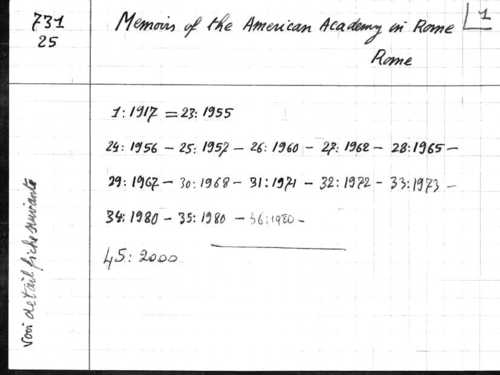 731
25
Memoirs of the American Academy in Rome
Rome
1
1:1917 = 23:1955
24:1956 - 25:1957 - 26:1960 - 27:1962 - 28:1965 -
29:1967 - 30:1968 - 31:1971 - 32:1972 - 33:1973 -
34:1980 - 35:1980 - 36:1980 -
45:2000
Voir detail fiche suivante